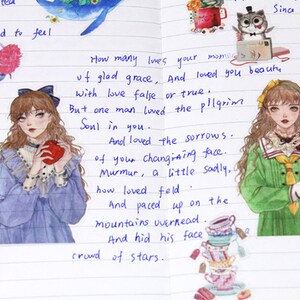 Since
to feel
How many loves your mom
of glad grace, And loved you beauty
with love false or true.
But one man loved the pilgrim
Soul in you.
And loved the sorrows.
of your changing face.
Murmur, a little sadly,
how loved feld.
And paced up on the
mountains overhead.
And hid his face
crowd of stars.